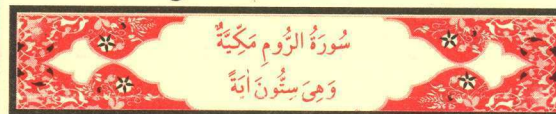 سُورَةُ الرُّومِ مَكِّيَّةٌ
وَهِىَ سِتُّونَ اٰيَةً